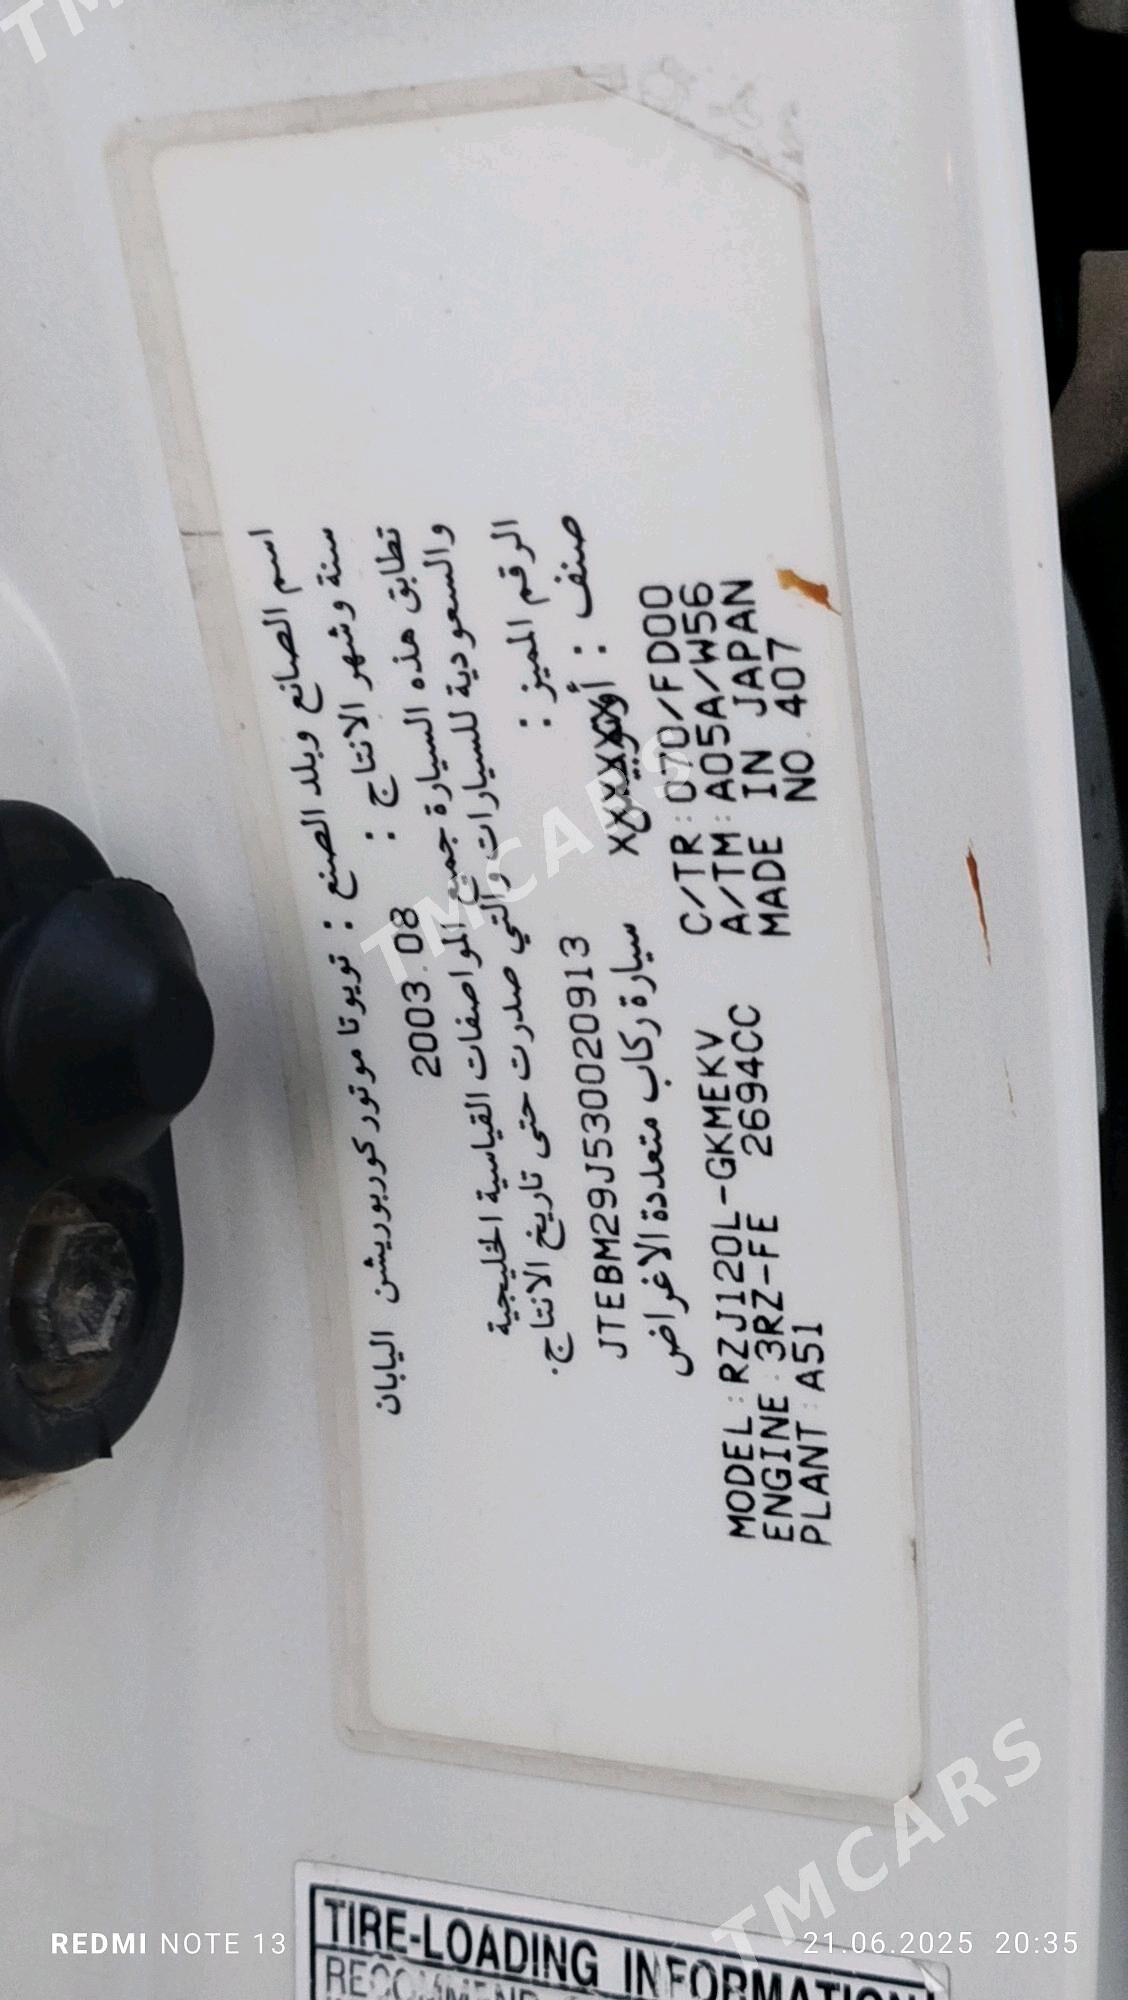 اسم الصانع وبلد الصنع : تويوتا موتور كوربوريشن اليابان
سنة وشهر الانتاج : 2003.08
تطابق هذه السيارة جميع المواصفات القياسية الخليجية
والسعودية للسيارات والتي صدرت حتى تاريخ الانتاج.
الرقم المميز : JTEBM29J530020913
صنف : سيارة ركاب متعددة الاغراض
MODEL : RZJ120L-GKMEKV C/TR : 070/FD00
ENGINE : 3RZ-FE 2694CC A/TM : A05A/W56
PLANT : A51 MADE IN JAPAN
NO. 407
TIRE-LOADING INFORMATION
TMCARS
TMCARS
REDMI NOTE 13
21.06.2025 20:35